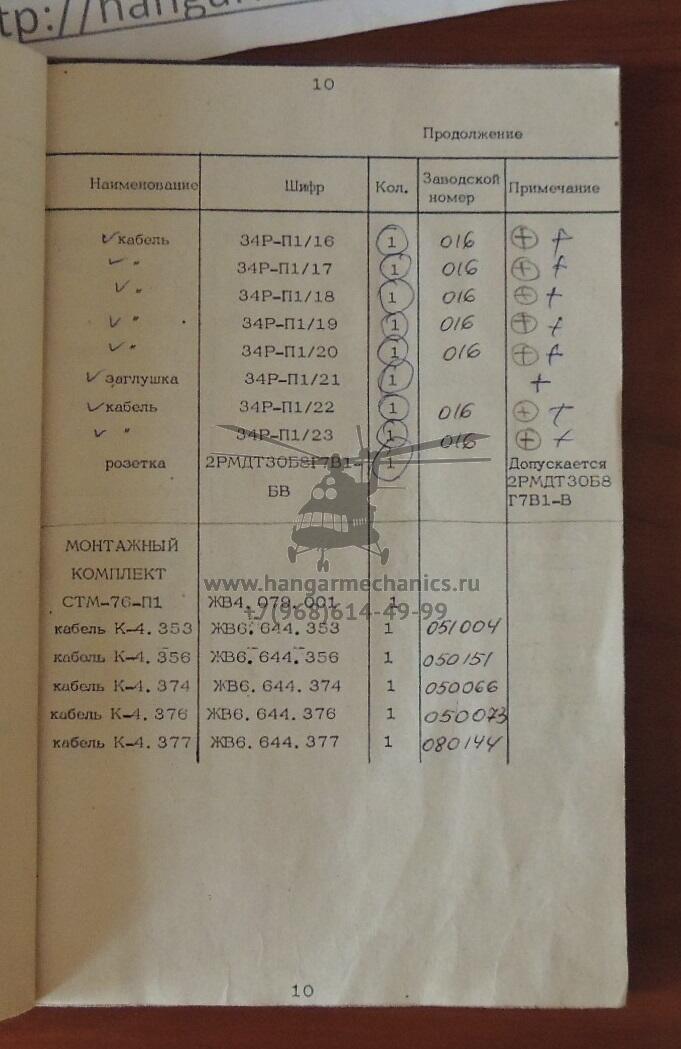 10
Продолжение
Наименование Шифр Кол. Заводской номер Примечание
✓ кабель 34Р-П1/16 1 016 ⊕ +
✓ " 34Р-П1/17 1 016 ⊕ +
✓ " 34Р-П1/18 1 016 ⊕ +
✓ " 34Р-П1/19 1 016 ⊕ +
✓ " 34Р-П1/20 1 016 ⊕ +
✓ заглушка 34Р-П1/21 1 +
✓ кабель 34Р-П1/22 1 016 ⊕ +
✓ " 34Р-П1/23 1 016 ⊕ +
розетка 2РМДТ30Б8Г7В1- 1 Допускается
БВ 2РМДТ30Б8
Г7В1-В
МОНТАЖНЫЙ
КОМПЛЕКТ
www.hangarmechanics.ru
СТМ-76-П1 ЖВ4.079.001 1
+7(968)614-49-99
кабель К-4.353 ЖВ6.644.353 1 051004
кабель К-4.356 ЖВ6.644.356 1 050151
кабель К-4.374 ЖВ6.644.374 1 050066
кабель К-4.376 ЖВ6.644.376 1 050073
кабель К-4.377 ЖВ6.644.377 1 080144
10